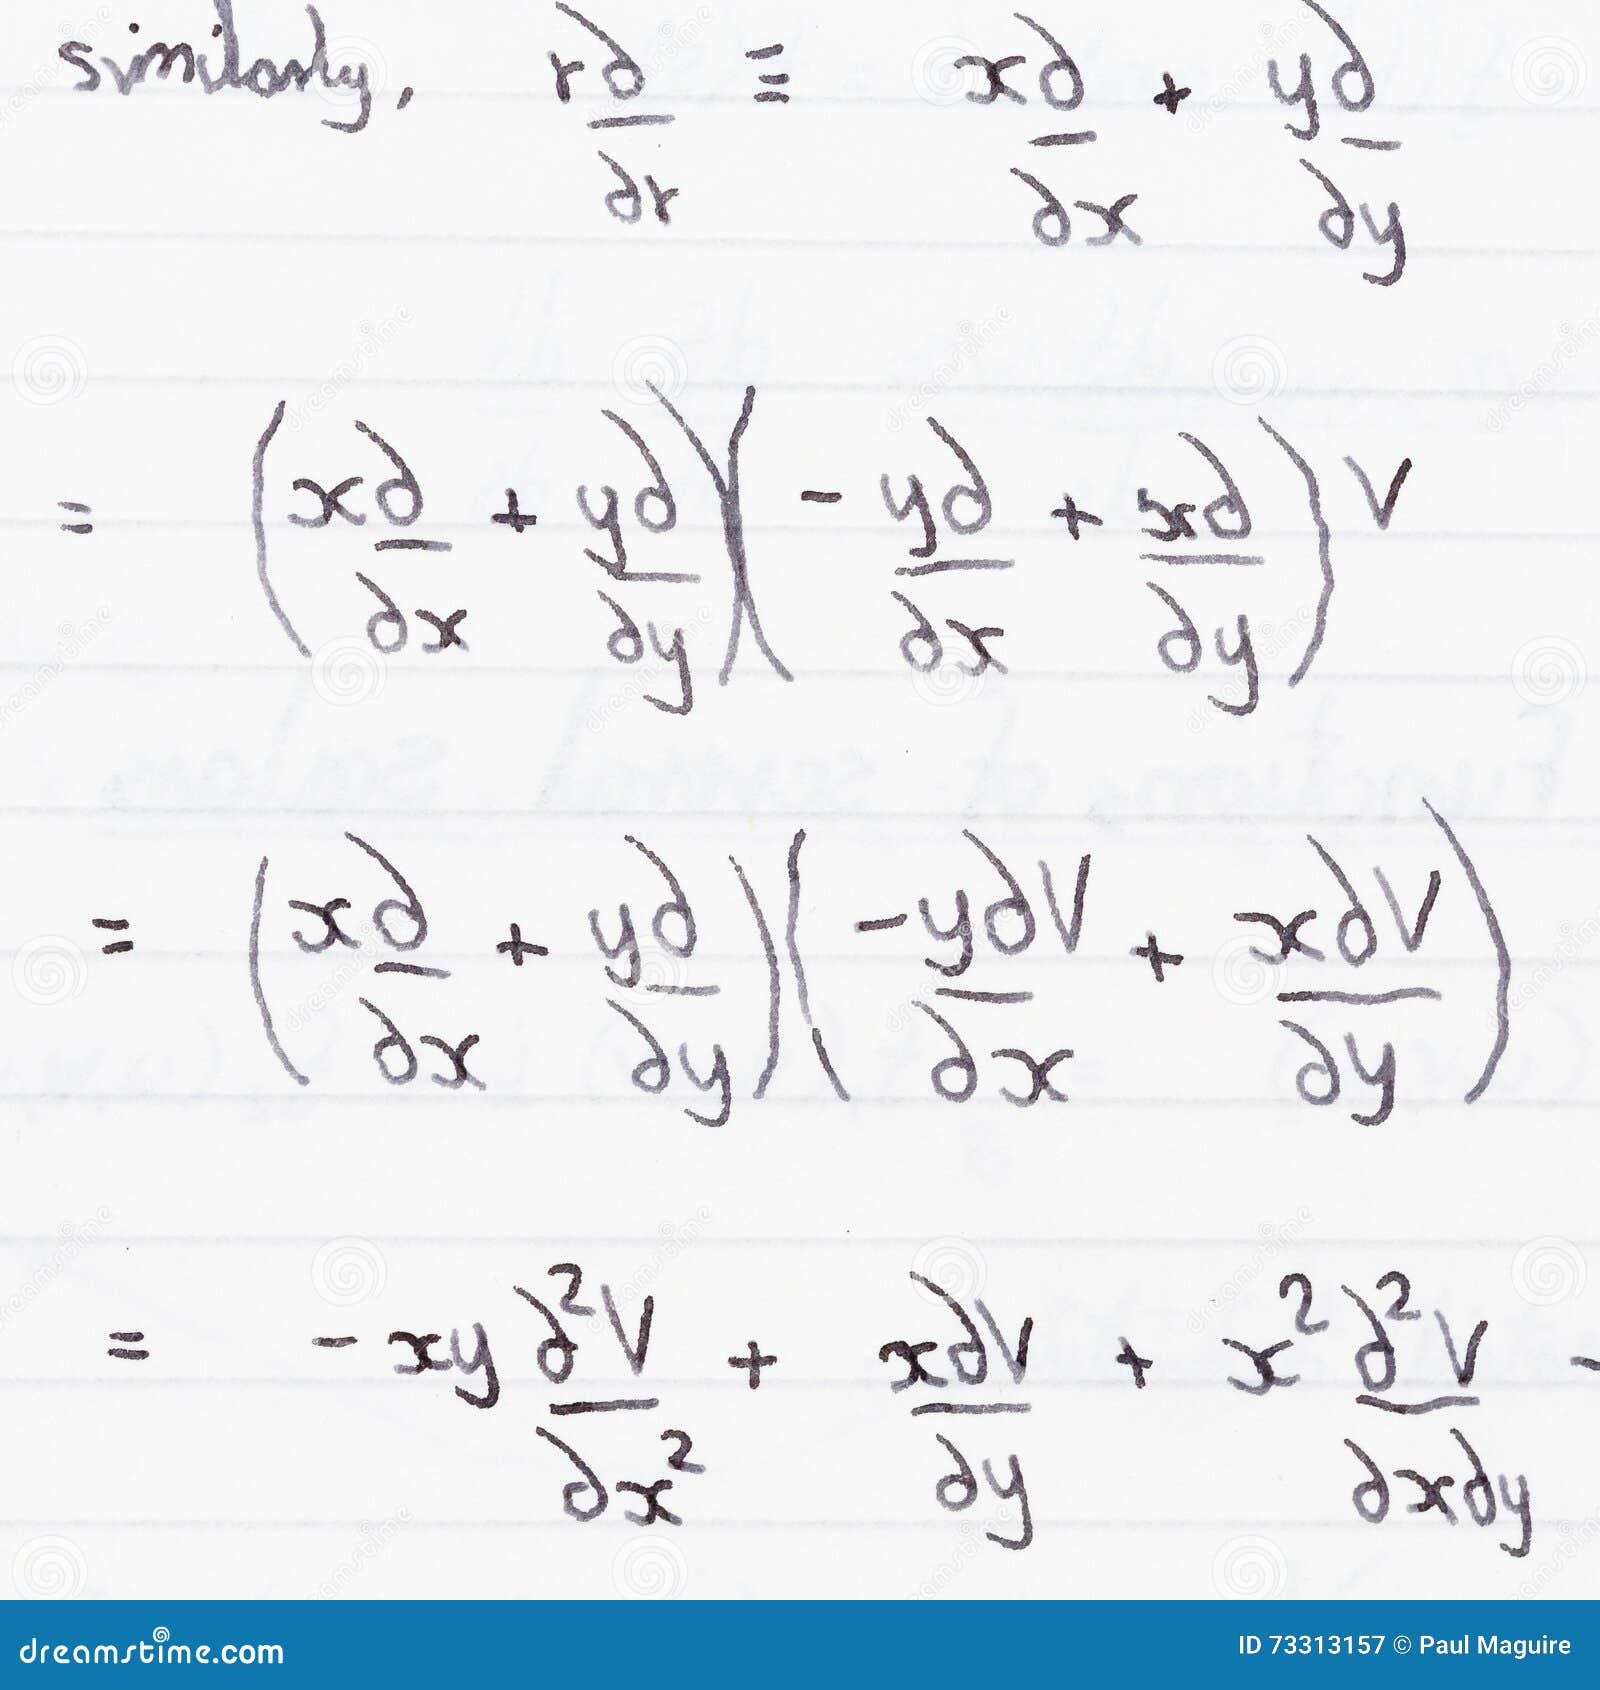 similarly, r∂/∂r ≡ x∂/∂x + y∂/∂y
= (x∂/∂x + y∂/∂y)(-y∂/∂x + x∂/∂y)V
= (x∂/∂x + y∂/∂y)(-y∂V/∂x + x∂V/∂y)
= -xy ∂²V/∂x² + x∂V/∂y + x² ∂²V/∂x∂y -
dreamstime.com
ID 73313157 © Paul Maguire